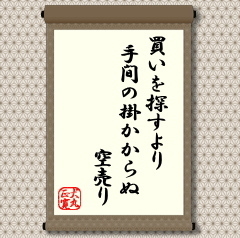 買いを探すより
手间の掛かからぬ
空売り